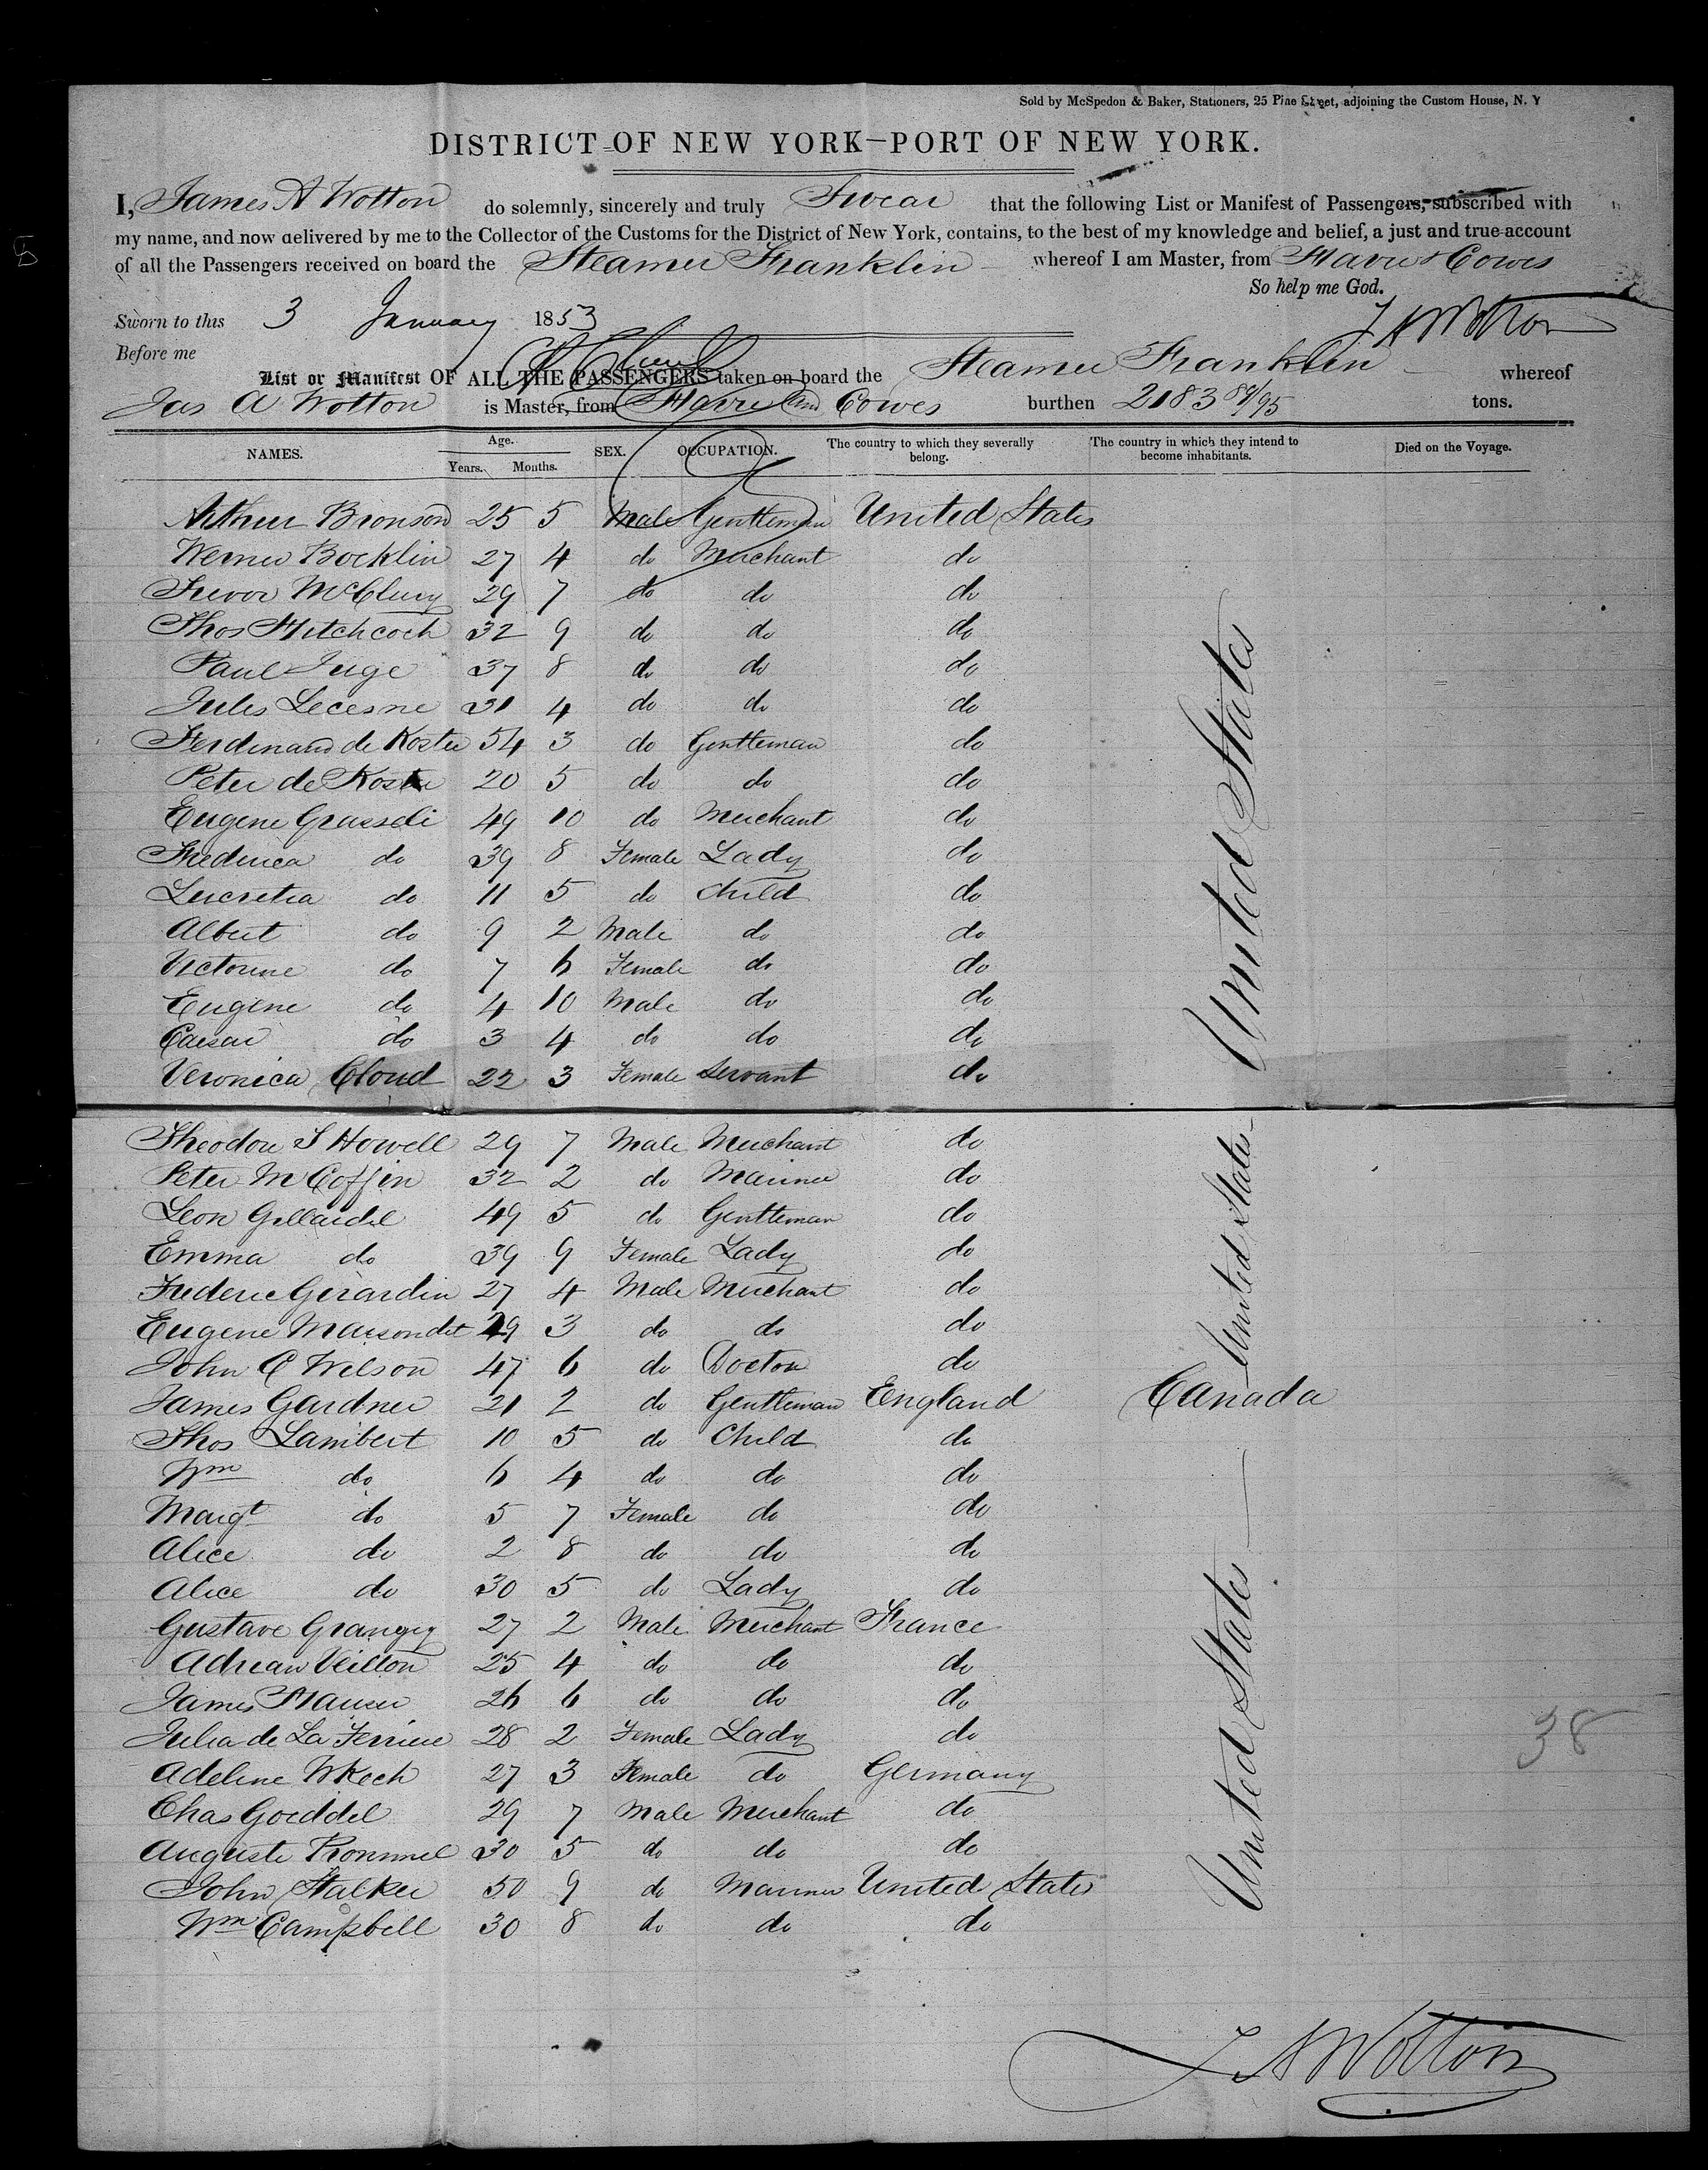 Sold by McSpedon & Baker, Stationers, 25 Pine Street, adjoining the Custom House, N. Y
DISTRICT OF NEW YORK—PORT OF NEW YORK.
I, James A Wotton do solemnly, sincerely and truly Swear that the following List or Manifest of Passengers, subscribed with
my name, and now delivered by me to the Collector of the Customs for the District of New York, contains, to the best of my knowledge and belief, a just and true account
of all the Passengers received on board the Steamer Franklin whereof I am Master, from Havre & Cowes
So help me God.
Sworn to this 3 January 1853 J A Wotton
Before me
List or Manifest OF ALL THE PASSENGERS taken on board the Steamer Franklin whereof
Jas A Wotton is Master, from Havre and Cowes burthen 2183 84/95 tons.
NAMES. Age. Years. Months. SEX. OCCUPATION. The country to which they severally belong. The country in which they intend to become inhabitants. Died on the Voyage.
Arthur Bronson 25 5 Male Gentleman United States
Werner Bocklin 27 4 do Merchant do
Trevor McClurg 29 7 do do do
Thos Hitchcock 32 9 do do do
Paul Juge 37 8 do do do
Jules Lecesne 31 4 do do do
Ferdinand de Koster 54 3 do Gentleman do
Peter de Koster 20 5 do do do
Eugene Grasseli 49 10 do Merchant do
Frederica do 39 8 Female Lady do
Lucretia do 11 5 do Child do
Albert do 9 2 Male do do
Victorine do 7 6 Female do do
Eugene do 4 10 Male do do
Caesar do 3 4 do do do
United States
Veronica Cloud 22 3 Female Servant do
Theodore S Howell 29 7 Male Merchant do
Peter M Coffin 32 2 do Mariner do
Leon Gillardel 49 5 do Gentleman do
Emma do 39 9 Female Lady do
Frederic Girardin 27 4 Male Merchant do
Eugene 29 3 do do do
John C Wilson 47 6 do Doctor do
United States
James Gardner 21 2 do Gentleman England Canada
Thos Lambert 10 5 do Child do
Wm do 6 4 do do do
Margt do 5 7 Female do do
Alice do 2 8 do do do
Alice do 30 5 do Lady do
Gustave 27 2 Male Merchant France
Adrian Veillon 25 4 do do do
James Hauser 26 6 do do do
Julia de La Ferriere 28 2 Female Lady do
38
Adeline 27 3 Female do Germany
Chas Goeddel 29 7 Male Merchant do
Auguste Rommel 30 5 do do do
United States
John Stalker 50 9 do Mariner United States
Wm Campbell 30 8 do do do
J A Wotton